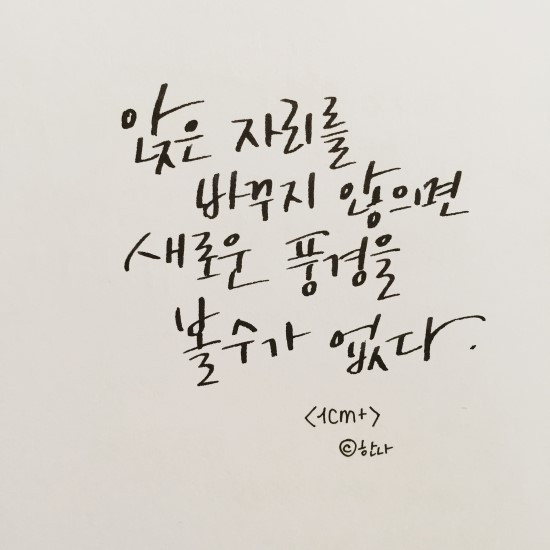 앉은 자리를
바꾸지 않으면
새로운 풍경을
볼수가 없다.
<1cm+>
©한나